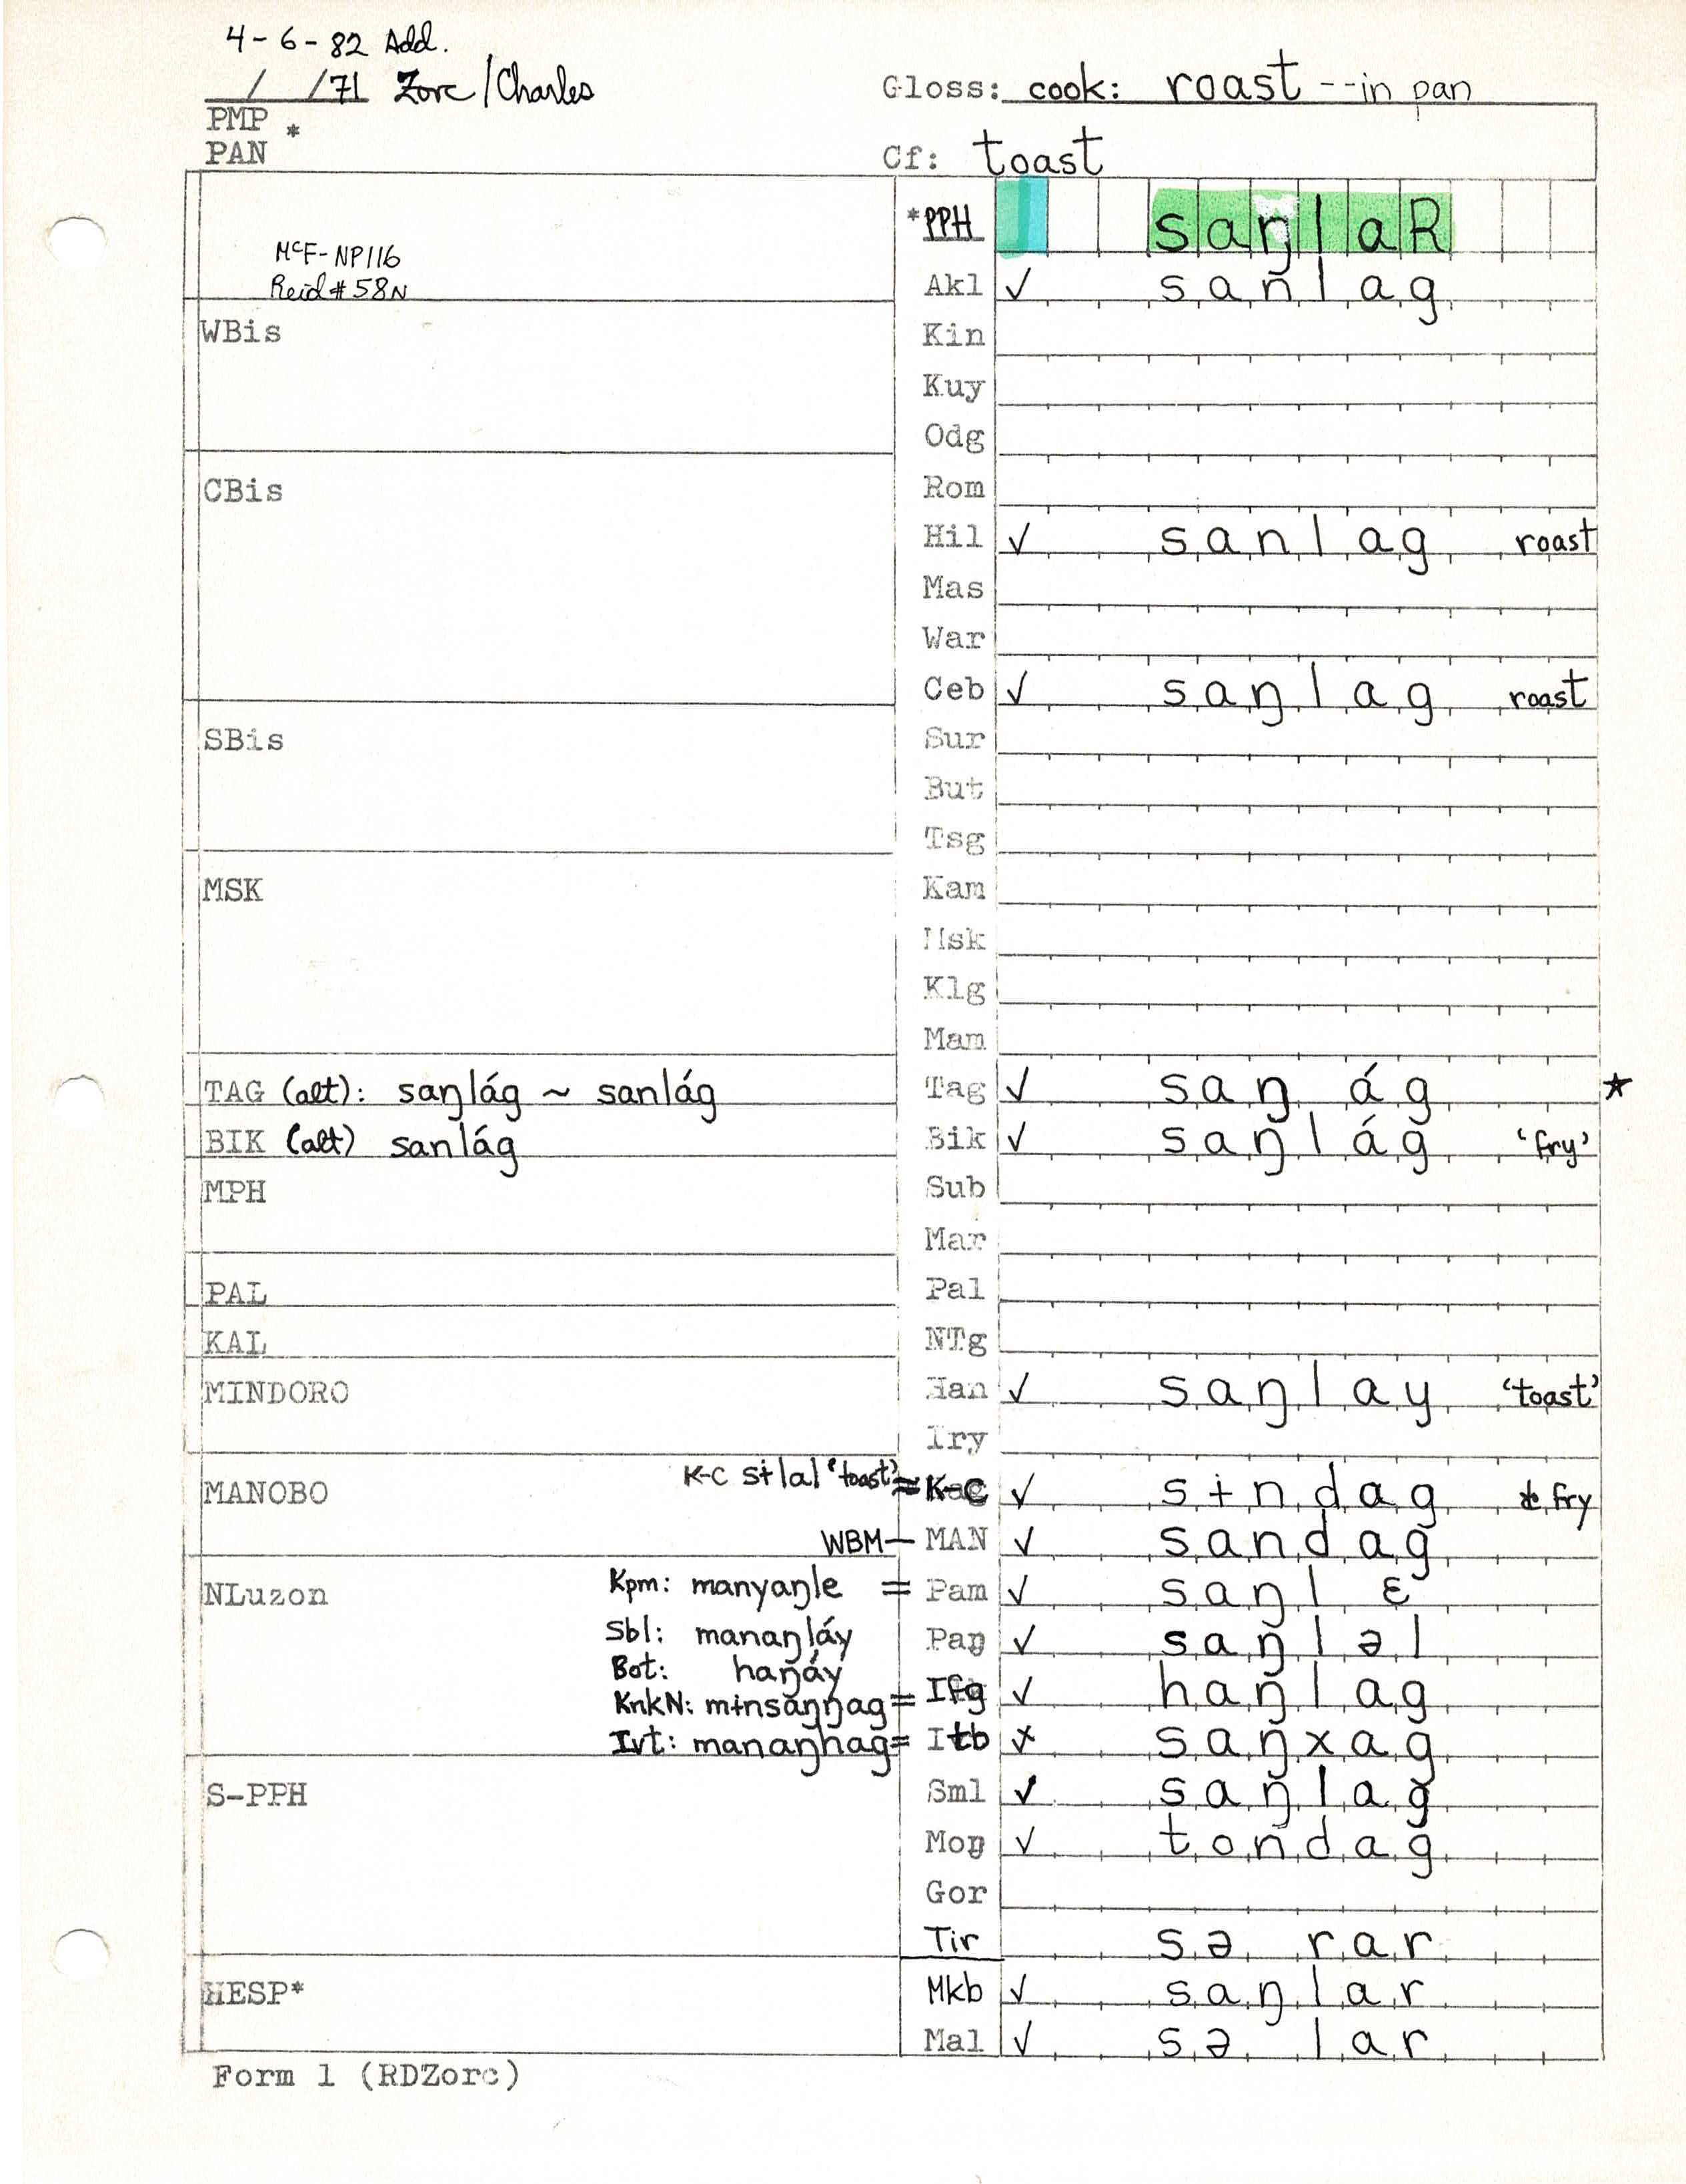 4-6-82 Add.
/ /71 Zorc/Charles
Gloss: cook: roast --in pan
PMP *
PAN
Cf: toast
*PPH saŋlaR
McF-NP116
Reid#58N
Akl ✓ sanlag
WBis
Kin
Kuy
Odg
CBis
Rom
Hil ✓ sanlag roast
Mas
War
Ceb ✓ saŋlag roast
SBis
Sur
But
Tsg
MSK
Kam
Msk
Klg
Mam
TAG (alt): saŋlág ~ sanlág
Tag ✓ saŋ ág *
BIK (alt) sanlág
Bik ✓ saŋlág 'fry'
MPH
Sub
Mar
PAL
Pal
KAL
NTg
MINDORO
Han ✓ saŋlay 'toast'
Iry
MANOBO
K-C sɨlal 'toast' ≈ K-C ✓ sɨndag fry
WBM— MAN ✓ sandag
NLuzon
Kpm: manyaŋle = Pam ✓ saŋl ɛ
Sbl: manaŋláy
Paŋ ✓ saŋləl
Bot: haŋáy
KnkN: mɨnsaŋŋag = Ifg ✓ haŋlag
Ivt: manaŋhag = Itb x saŋxag
S-PPH
Sml ✓ saŋlag
Moŋ ✓ tondag
Gor
Tir sə rar
HESP*
Mkb ✓ saŋlar
Mal ✓ sə lar
Form 1 (RDZorc)